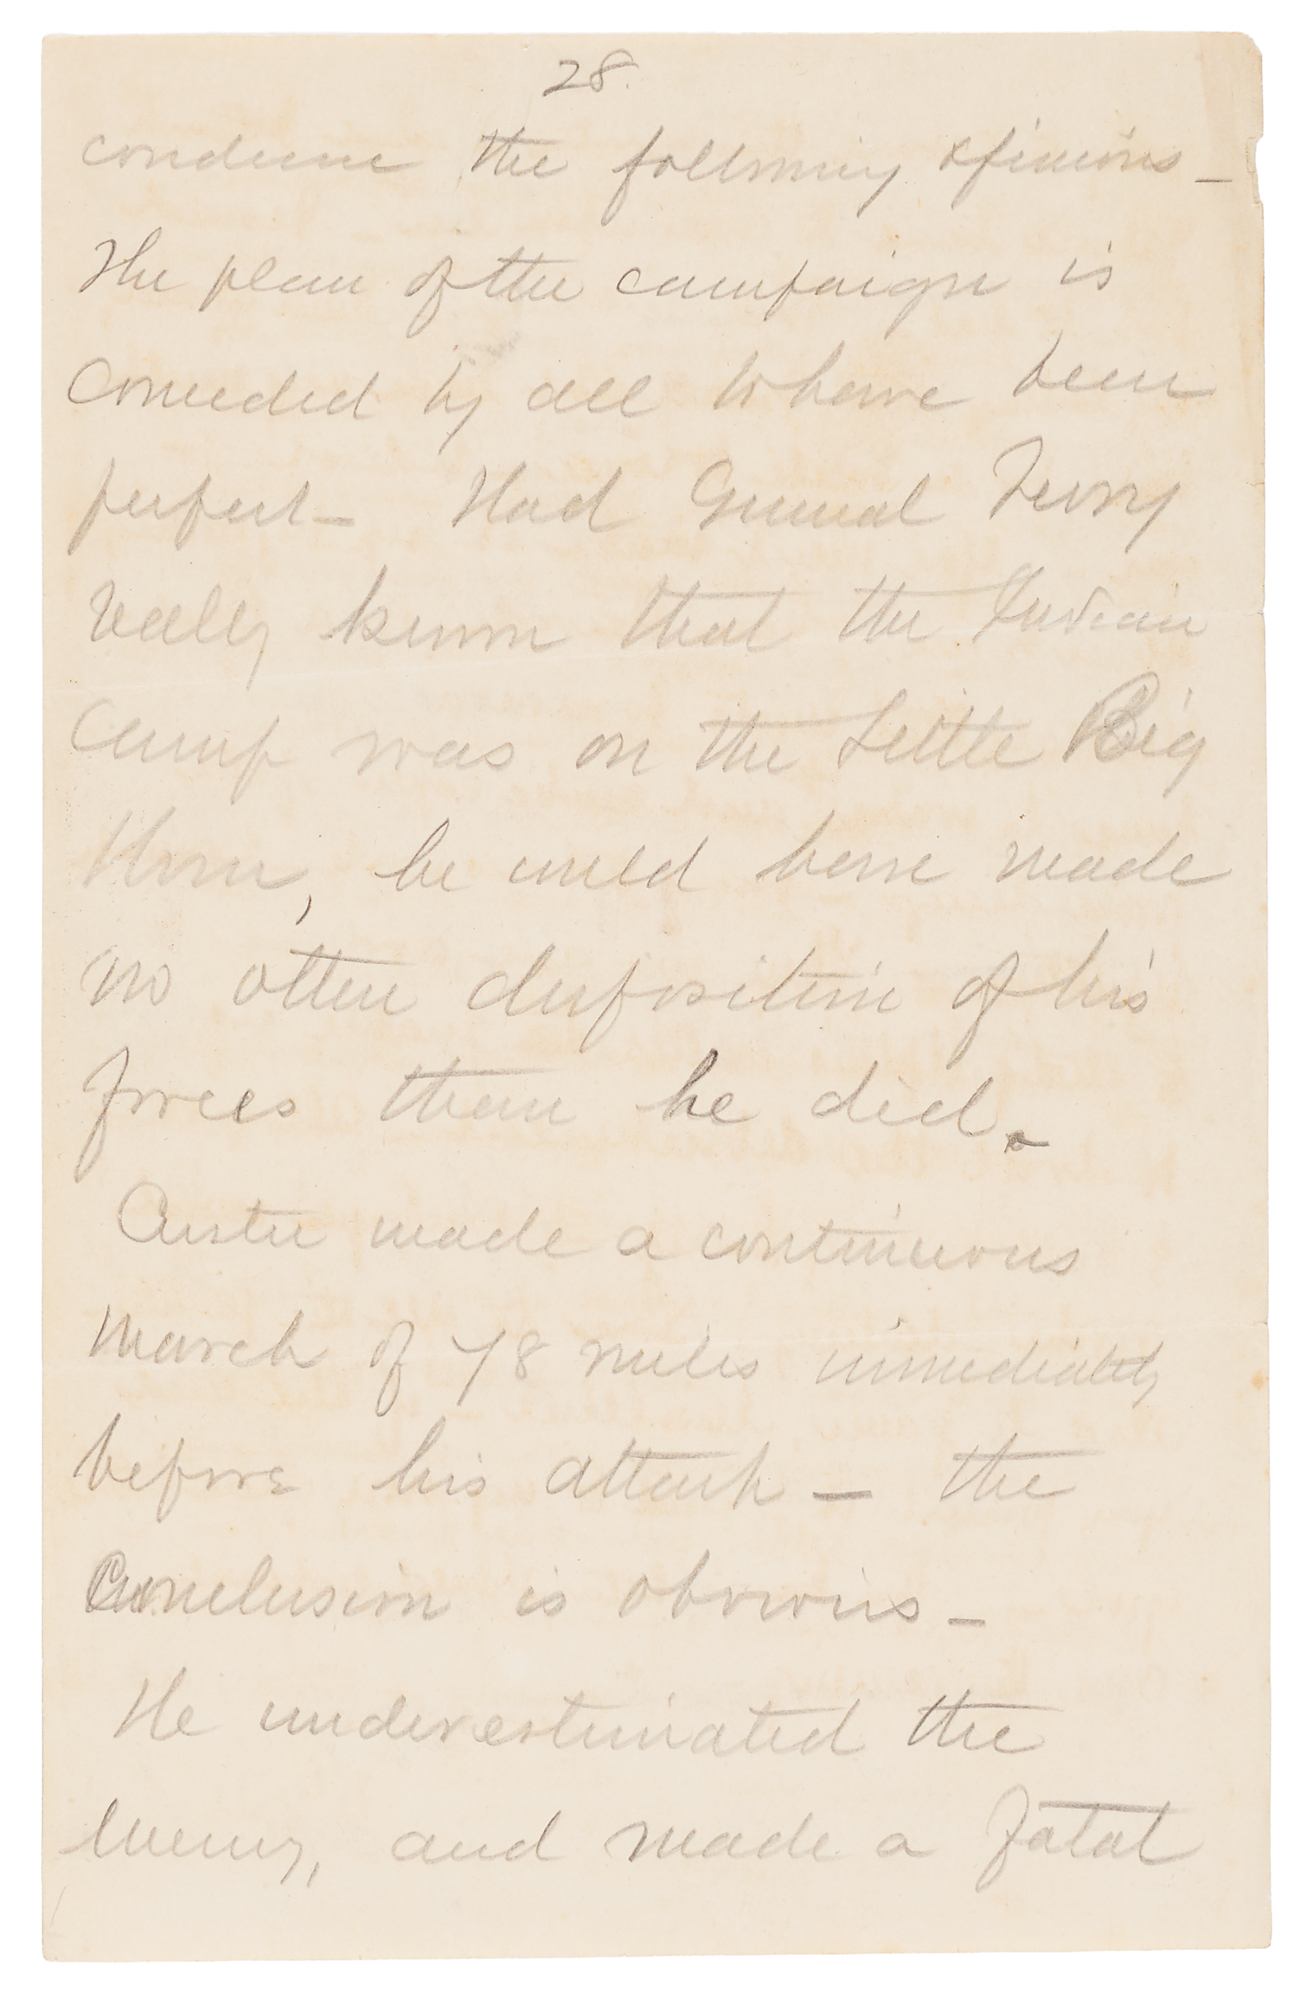 28.
condense the following opinions -
The plan of the campaign is
conceded by all to have been
perfect - Had General Terry
really known that the Indian
Camp was on the Little Big
Horn, he could have made
no other disposition of his
forces than he did.
Custer made a continuous
March of 78 miles immediately
before his attack - the
Conclusion is obvious -
He underestimated the
enemy, and made a fatal